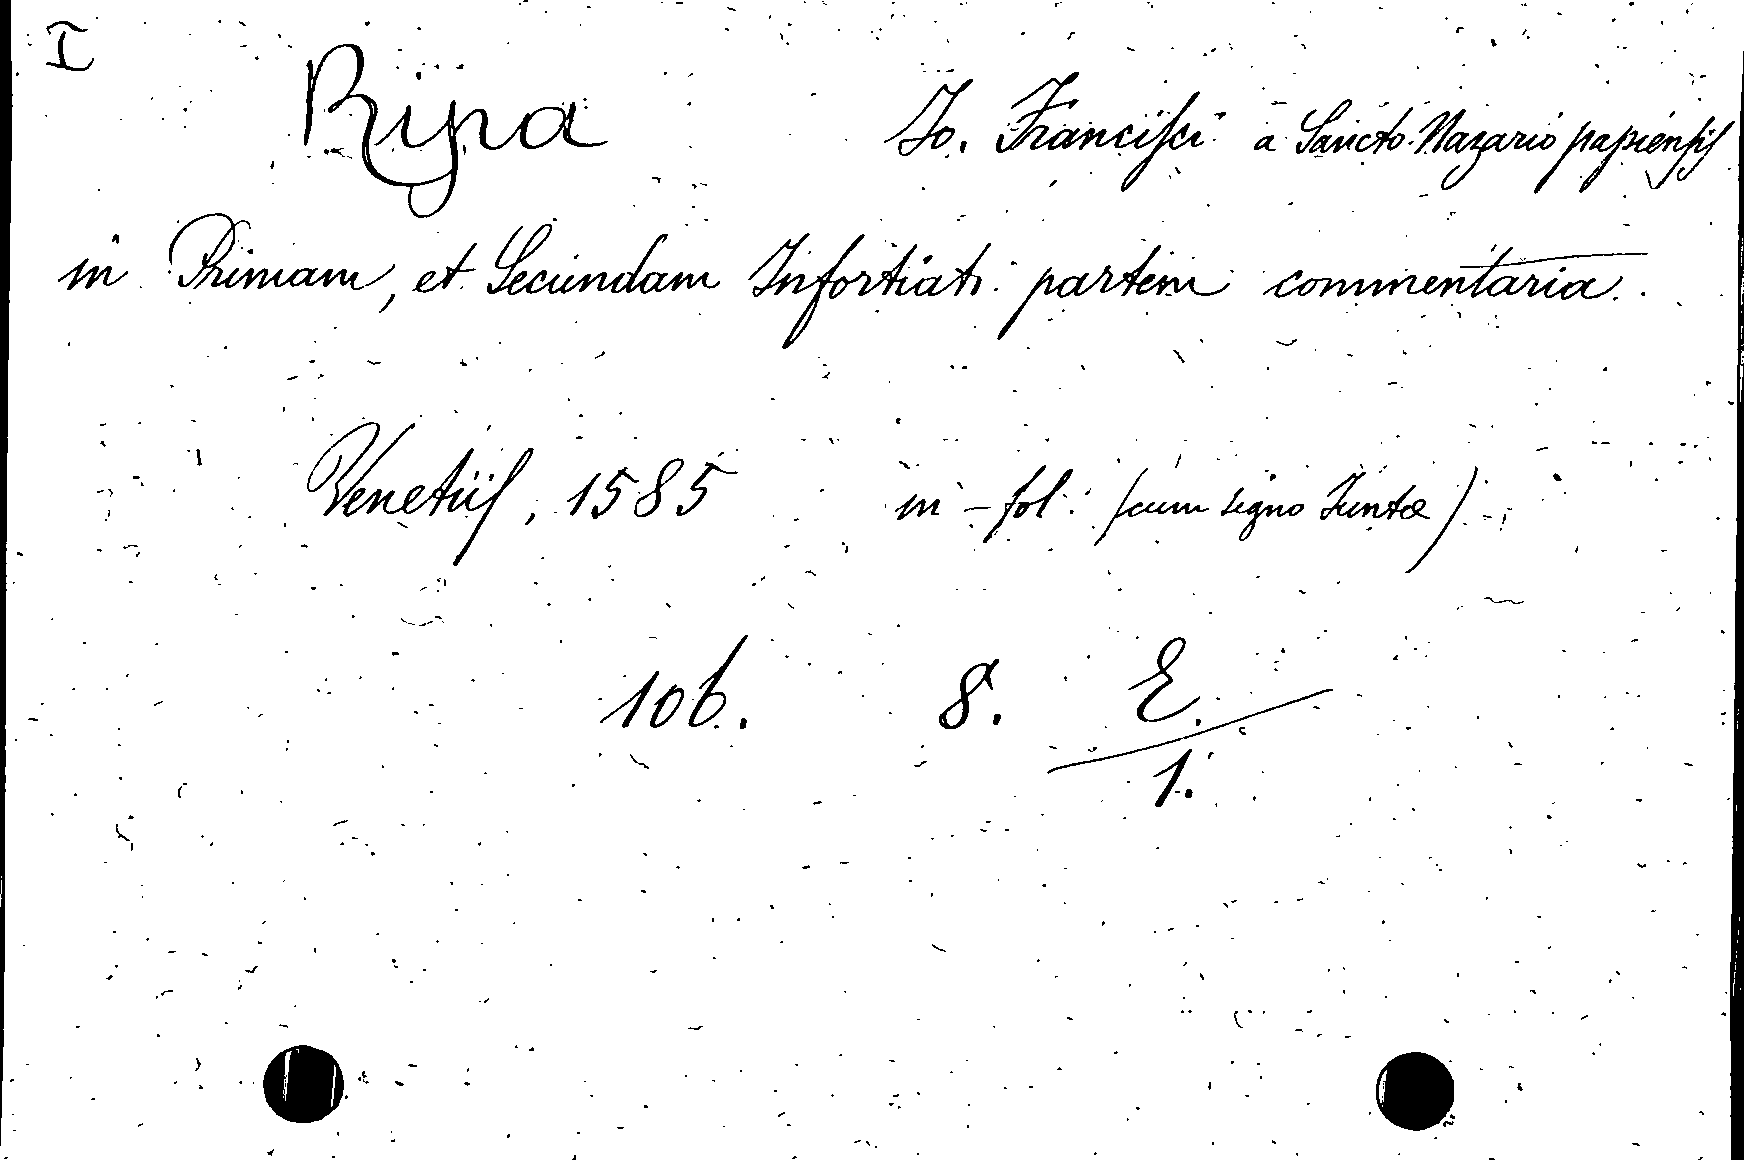 I
Ripa Jo. Francisci a Sancto Nazario papiensis
in Primam, et Secundam Infortiati partem commentaria.
Venetiis, 1585 in-fol. (cum signo Juntæ)
106. 8. E.
1.